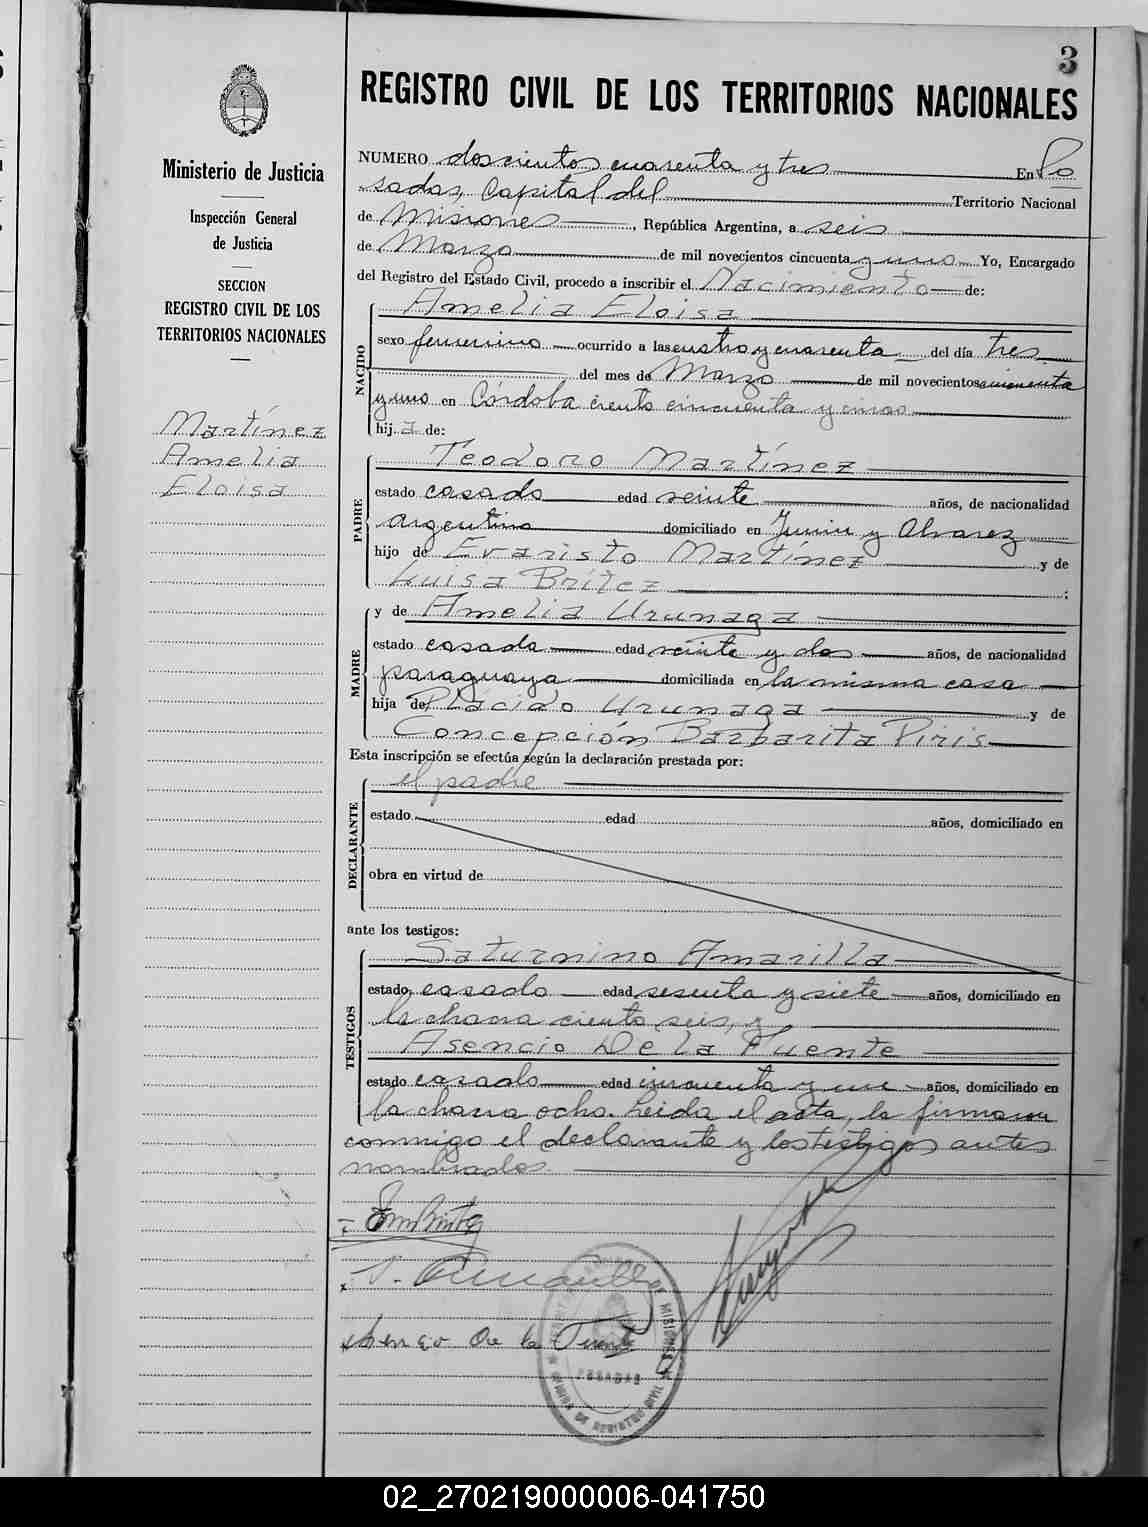 3
REGISTRO CIVIL DE LOS TERRITORIOS NACIONALES
Ministerio de Justicia
Inspección General
de Justicia
SECCION
REGISTRO CIVIL DE LOS
TERRITORIOS NACIONALES
Martínez
Amelia
Eloisa
NUMERO doscientos cuarenta y tres En Po
sadas, Capital del Territorio Nacional
de Misiones, República Argentina, a seis
de Marzo de mil novecientos cincuenta y uno Yo, Encargado
del Registro del Estado Civil, procedo a inscribir el Nacimiento de:
NACIDO
Amelia Eloisa
sexo femenino ocurrido a las cuatro y cuarenta del día tres
del mes de Marzo de mil novecientos cincuenta
y uno en Córdoba ciento cincuenta y cinco
hija de:
PADRE
Teodoro Martínez
estado casado edad veinte años, de nacionalidad
argentino domiciliado en Junin y Alvarez
hijo de Evaristo Martínez y de
Luisa Britez ;
MADRE
y de Amelia Urunaga
estado casada edad veinte y dos años, de nacionalidad
paraguaya domiciliada en la misma casa
hija de Plácido Urunaga y de
Concepción Barbarita Piris
Esta inscripción se efectúa según la declaración prestada por:
DECLARANTE
el padre
estado edad años, domiciliado en
obra en virtud de
ante los testigos:
TESTIGOS
Saturnino Amarilla
estado casado edad sesenta y siete años, domiciliado en
la chacra ciento seis, y
Asencio De la Fuente
estado casado edad cincuenta y un años, domiciliado en
la chacra ocho. Leida el acta, la firmaron
conmigo el declarante y los testigos antes
nombrados.
S. Amarilla
Asencio De la Fuente
DE MISIONES
POSADAS
DE REGISTRO CIVIL
02_270219000006-041750